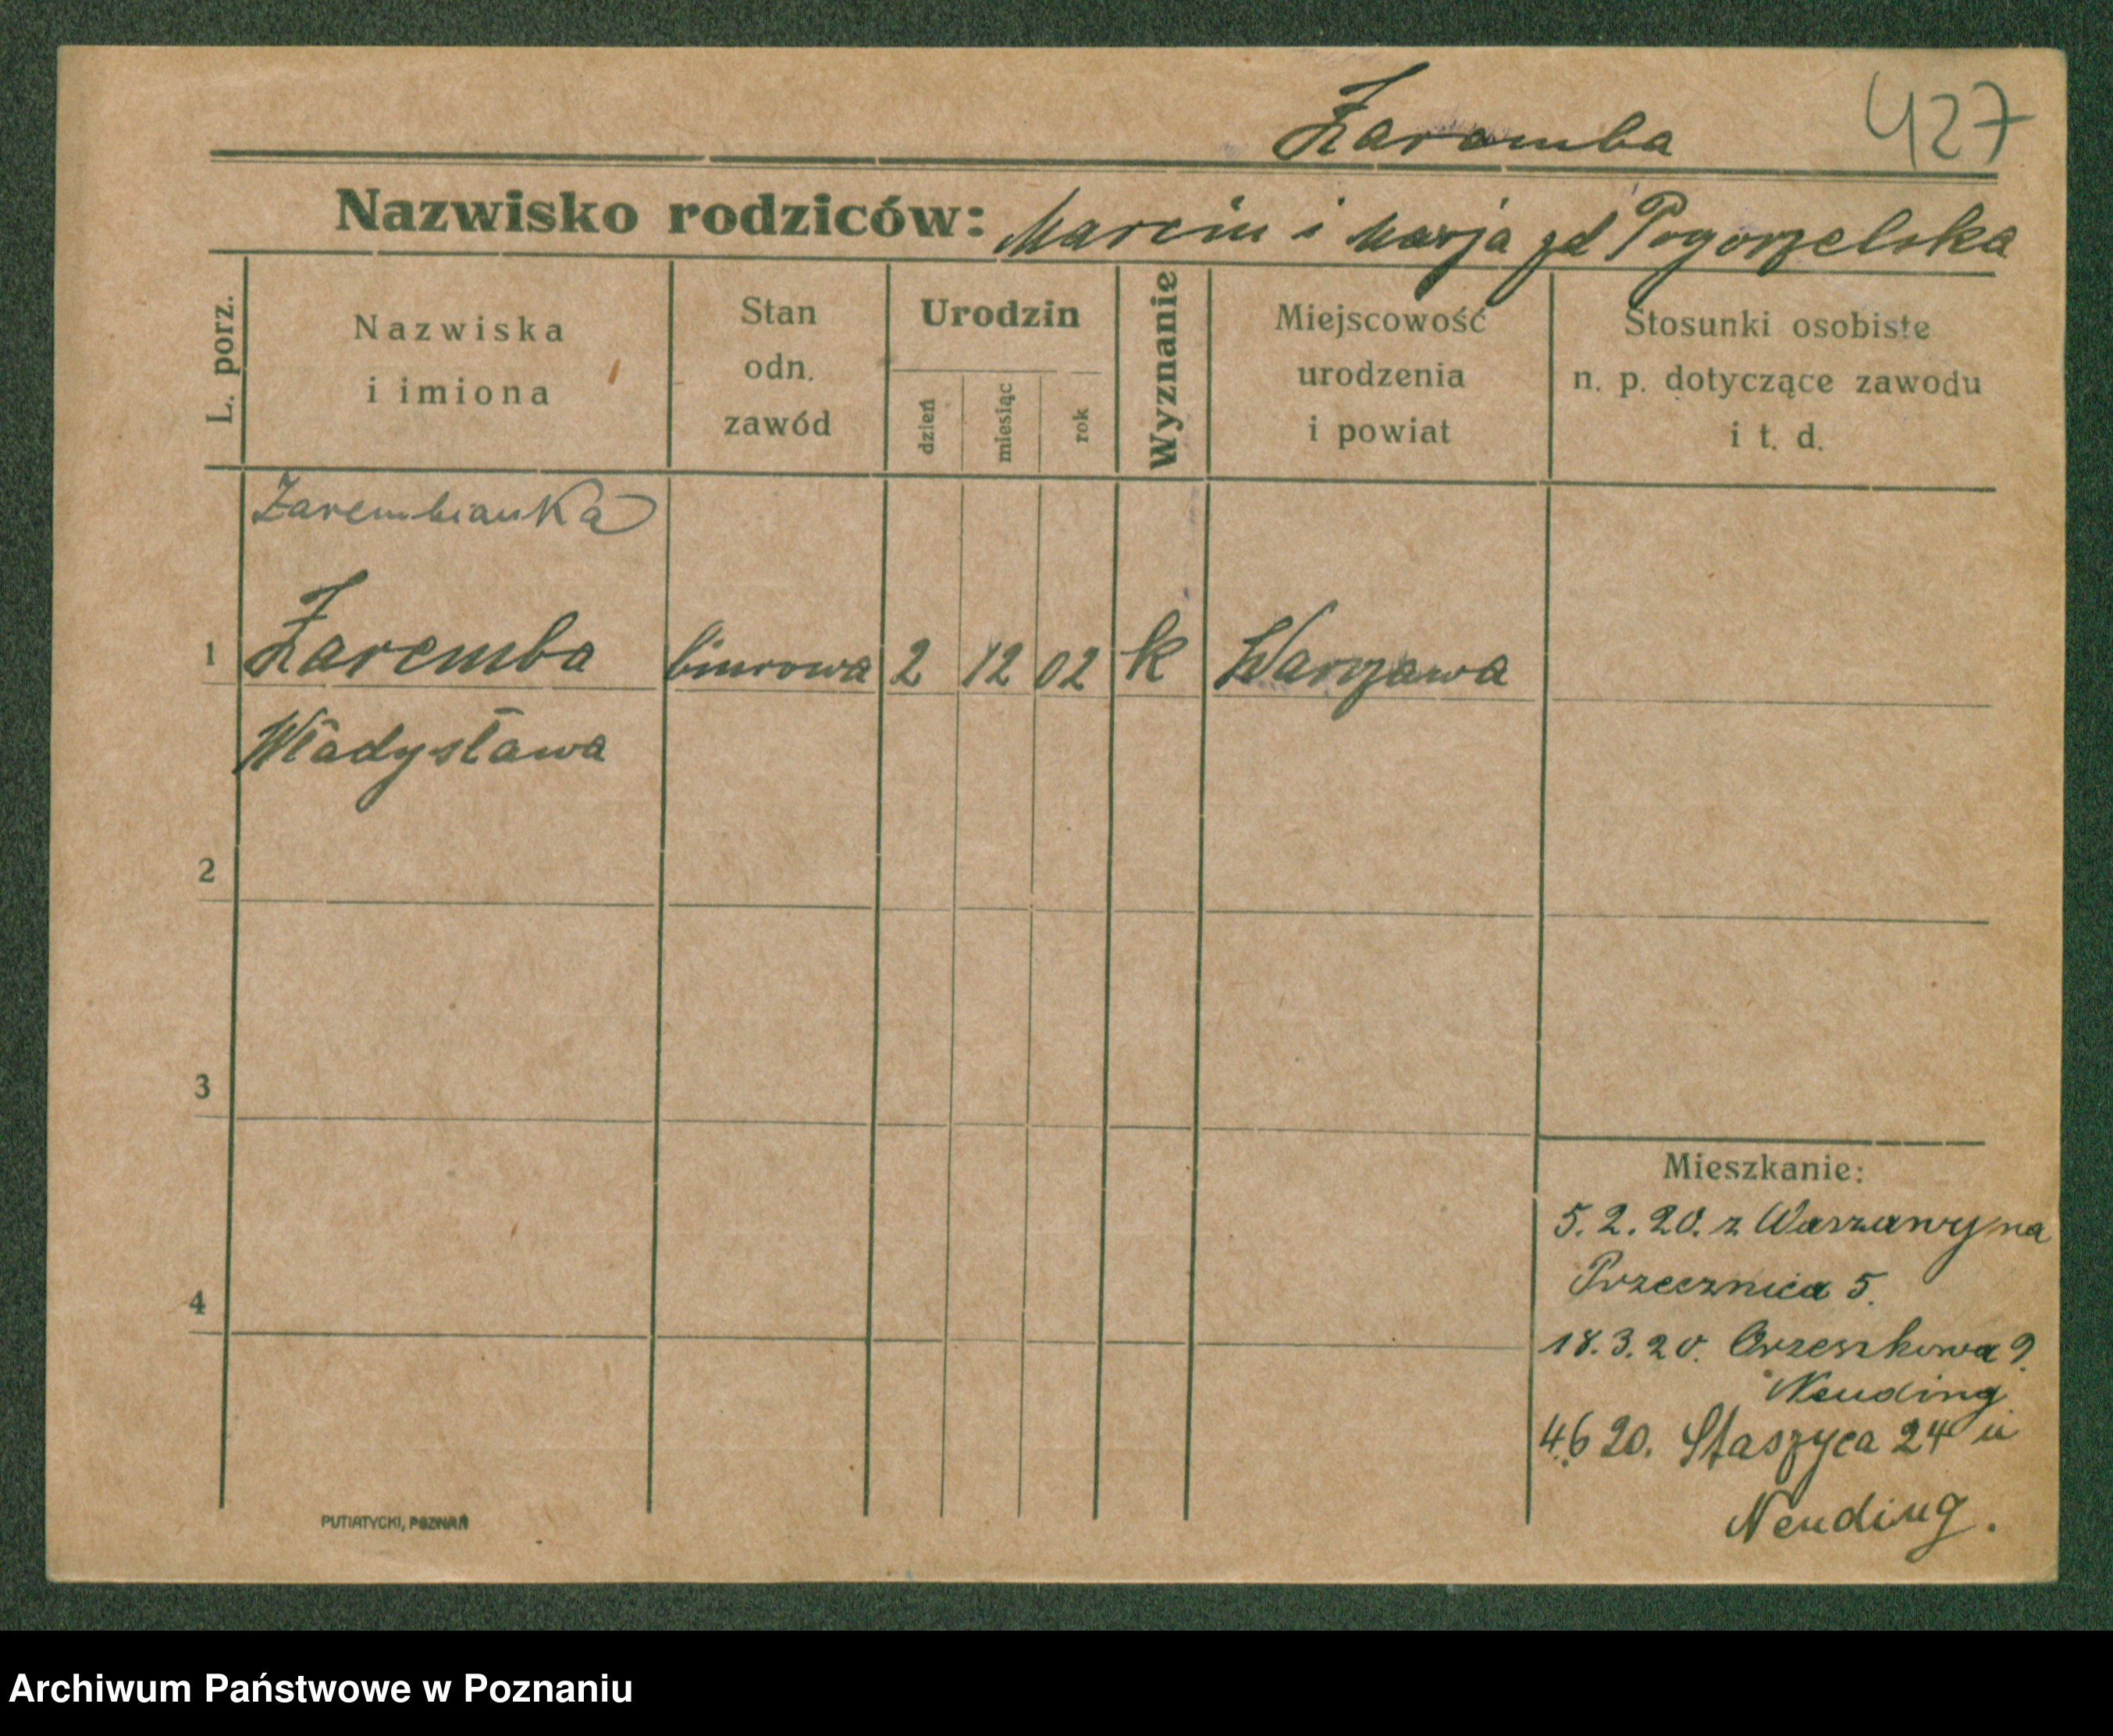 427
Zaremba
Nazwisko rodziców: Marcin i Marja zd Pogorzelska
L. porz.
Nazwiska
i imiona
Stan
odn.
zawód
Urodzin
dzień
miesiąc
rok
Wyznanie
Miejscowość
urodzenia
i powiat
Stosunki osobiste
n. p. dotyczące zawodu
i t. d.
Zarembianka
1 Zaremba biurowa 2 12 02 k Warszawa
Władysława
2
3
4
Mieszkanie:
5.2.20. z Warszawy na
Przecznica 5.
18.3.20. Orzeszkowa 9.
Neuding
4.6.20. Staszyca 24 u
Neuding.
PUTIATYCKI, POZNAŃ
Archiwum Państwowe w Poznaniu